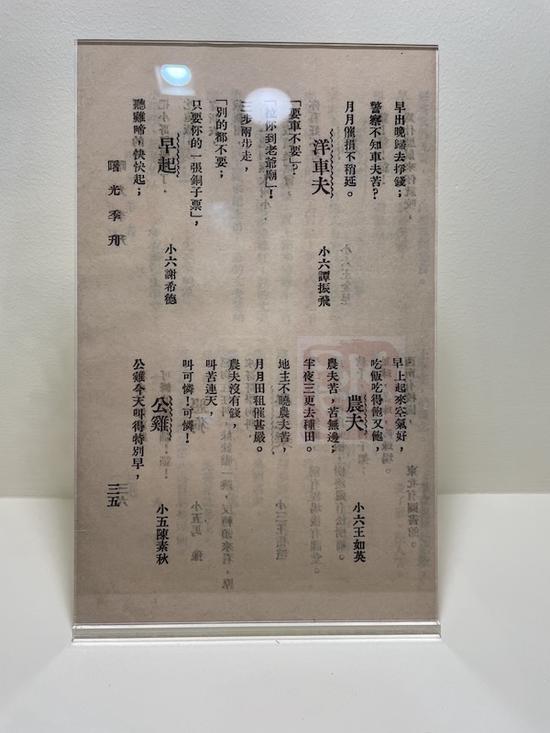 早出晚歸去掙錢；
警察不知車夫苦？
月月催捐不稍延。
洋車夫
小六譚振飛
「要車不要」？
「拉你到老爺廟」！
三步兩步走，
「別的都不要；
只要你的一張銅子票」，
早起
小六謝希德
聽雞啼的快快起；
早上起來空氣好，
吃飯吃得飽又飽，
農夫
小六王如英
農夫苦，苦無邊；
半夜三更去種田。
地主不曉農夫苦，
月月田租催甚嚴。
農夫沒有錢，
叫苦連天，
叫可憐！可憐！
公雞
小五陳素秋
公雞今天叫得特別早，
曙光季刊
三五